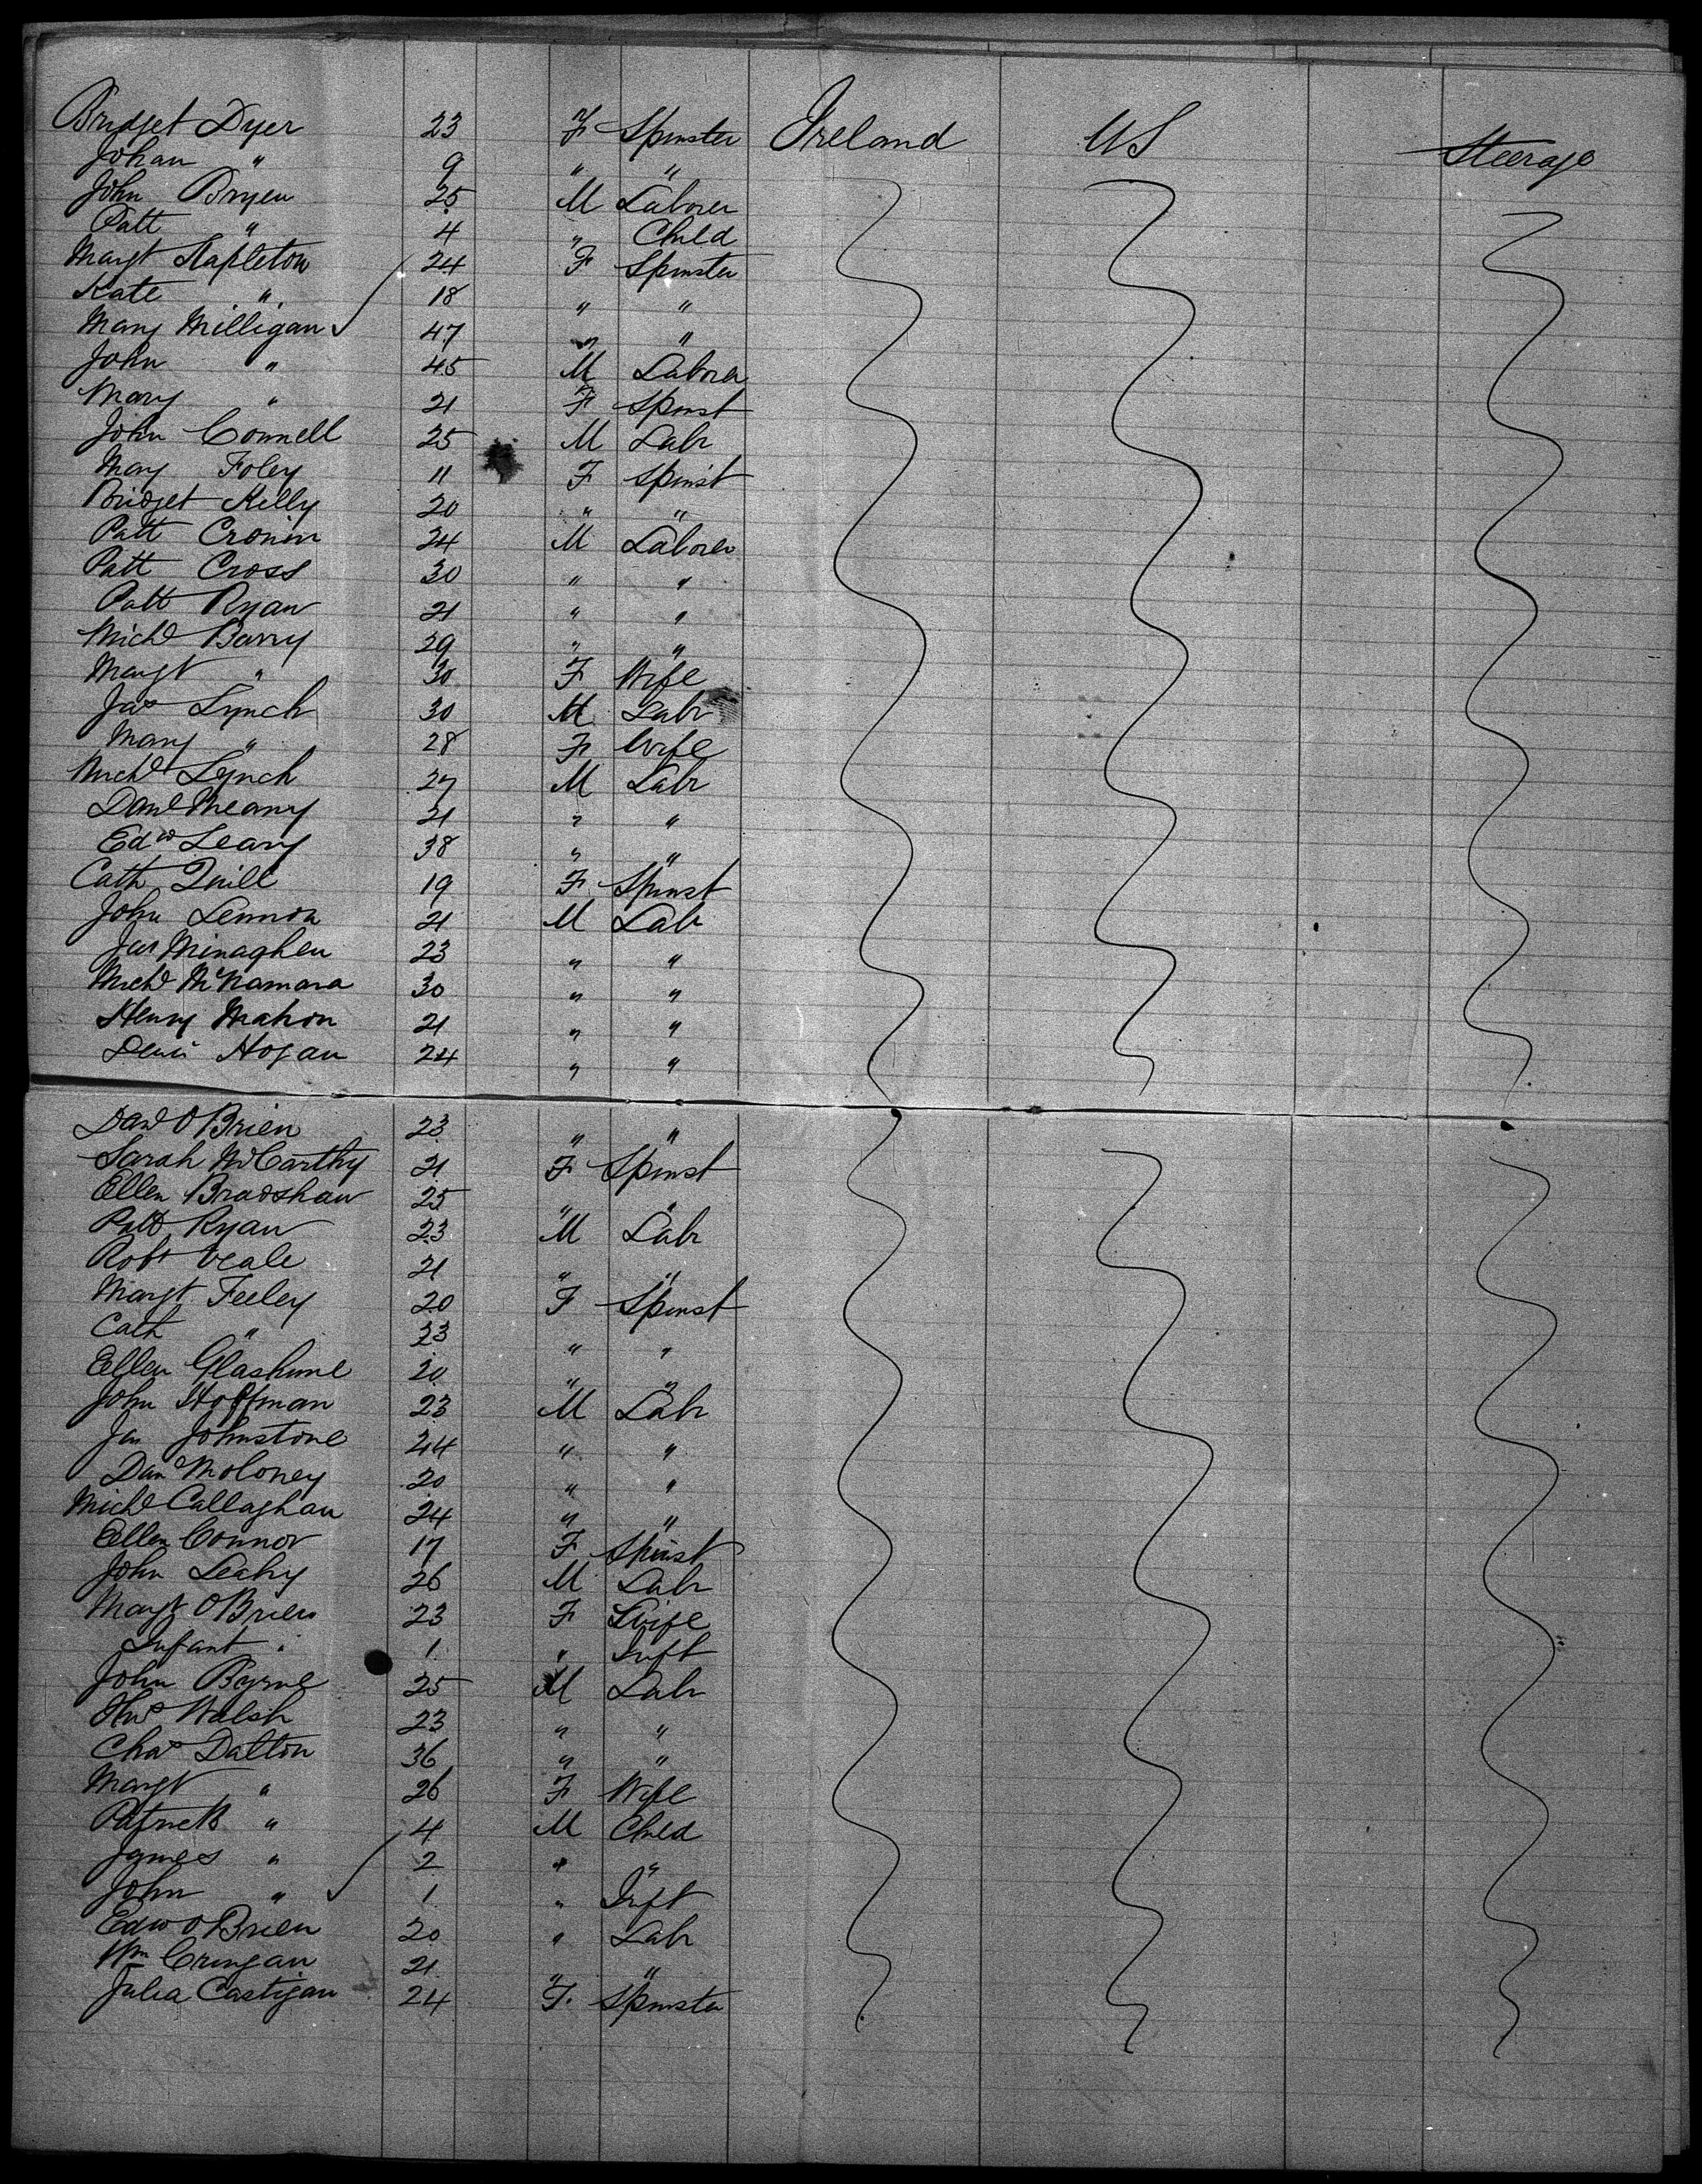 Bridget Dyer 23 F Spinster Ireland US Steerage
Johan " 9 " "
John Bryen 25 M Laborer
Patt " 4 " Child
Margt Stapleton 24 F Spinster
Kate " 18 " "
Mary Milligan 47 " "
John " 45 M Laborer
Mary " 21 F Spinst
John Connell 25 M Labr
Mary Foley 11 F Spinst
Bridget Kelly 20 " "
Patt Cronin 24 M Laborer
Patt Cross 30 " "
Patt Ryan 21 " "
Michl Barry 29 " "
Margt " 30 F Wife
Jas Lynch 30 M Labr
Mary " 28 F Wife
Michl Lynch 27 M Labr
Danl Meany 21 " "
Edwd Leary 38 " "
Cath Quill 19 F Spinst
John Lennon 21 M Labr
Jas Minaghen 23 " "
Michl McNamara 30 " "
Henry Mahon 21 " "
Denis Hogan 24 " "
Danl O Brien 23 " "
Sarah McCarthy 21 F Spinst
Ellen Bradshaw 25 " "
Patt Ryan 23 M Labr
Robt Veale 21 " "
Margt Feeley 20 F Spinst
Cath " 23 " "
Ellen 20 " "
John Hoffman 23 M Labr
Jas Johnstone 24 " "
Danl Moloney 20 " "
Michl Callaghan 24 " "
Ellen Connor 17 F Spinst
John Leahy 26 M Labr
Margt O Brien 23 F Wife
Infant " 1 " Inft
John Byrne 25 M Labr
Walsh 23 " "
Chas Dalton 36 " "
Margt " 26 F Wife
Patrick " 4 M Child
James " 2 " "
John " 1 " Inft
Edwd O Brien 20 " Labr
Wm 21 " "
Julia Castigan 24 F. Spinster